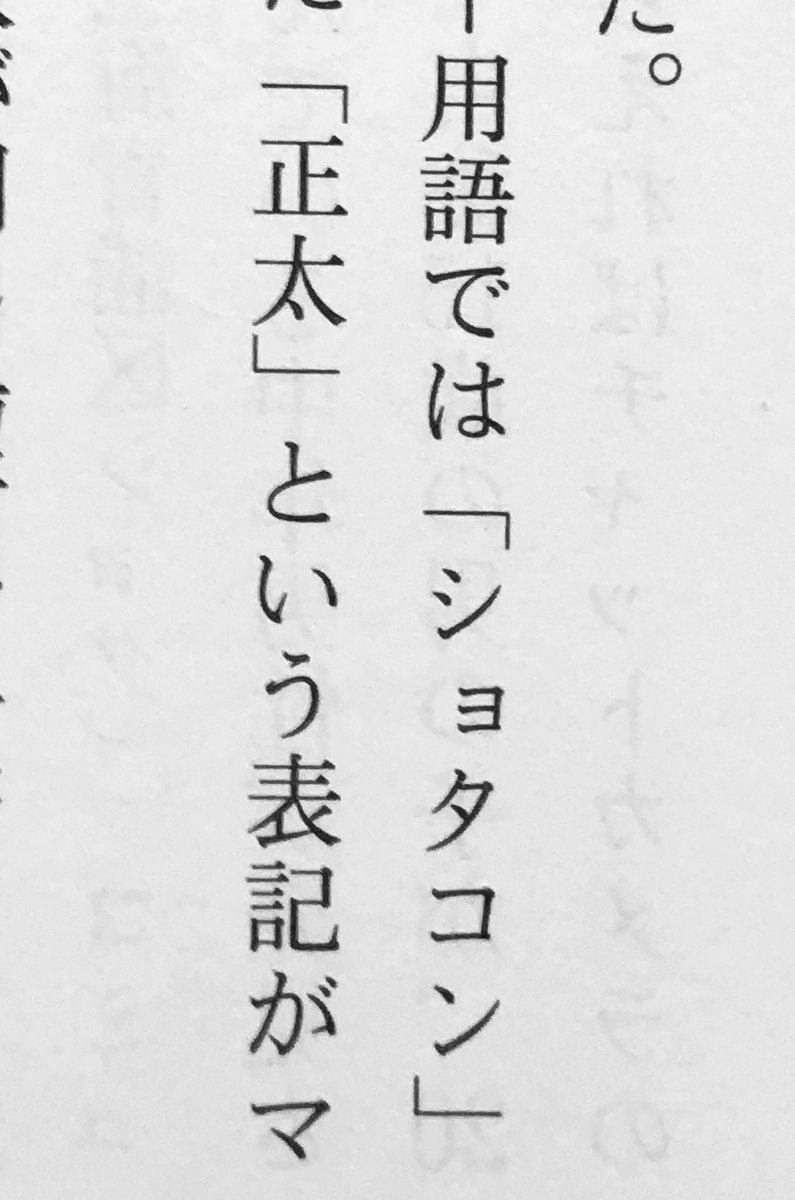 た。
ー用語では「ショタコン」
「正太」という表記がマ